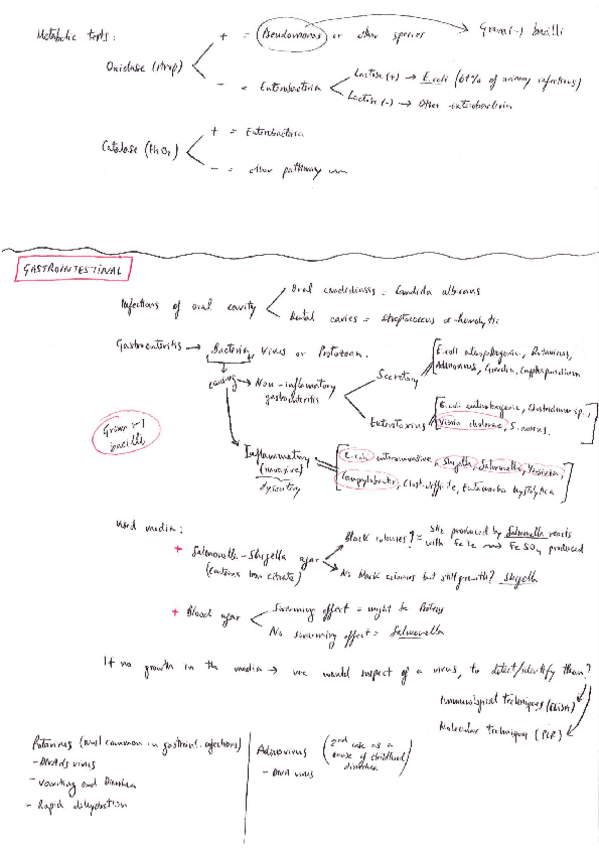 Metabolic tests:
+ = Pseudomonas or other species → Gram (-) bacilli
Oxidase (strep)
- = Enterobacteria
Lactose (+) → E. coli (61% of urinary infections)
Lactose (-) → Other enterobacteria
+ = Enterobacteria
Catalase (H2O2)
- = other pathway
GASTROINTESTINAL
Infections of oral cavity
Oral candidiasis = Candida albicans
Dental caries = Streptococcus α-hemolytic
Gastroenteritis → Bacteria, Virus or Protozoan.
causing
Non-inflammatory gastroenteritis
Secretory
E. coli, Rotavirus,
Adenovirus, Giardia, Cryptosporidium
Enterotoxins
E. coli enterotoxigenic, Clostridium sp.,
Vibrio cholerae, S. aureus.
Gram (-)
bacilli
Inflammatory
(invasive)
dysentery
E. coli enteroinvasive, Shigella, Salmonella, Yersinia,
Campylobacter, Clost. difficile, Entamoeba hystolytica
Used media:
+ Salmonella - Shigella agar
(contains iron citrate)
Black colonies? = SH2 produced by Salmonella reacts
with Fe produced
No black colonies but still growth? Shigella
+ Blood agar
Swarming effect = might be Proteus
No swarming effect = Salmonella
If no growth in the media → we would suspect of a virus, to detect/identify them?
Immunological techniques (ELISA)
Molecular techniques (PCR)
Rotavirus (most common in gastroint. infections)
- virus
- Vomiting and Diarrhea
- Rapid dehydration
Adenovirus
(2nd as a
cause of childhood
diarrhea)
- DNA virus